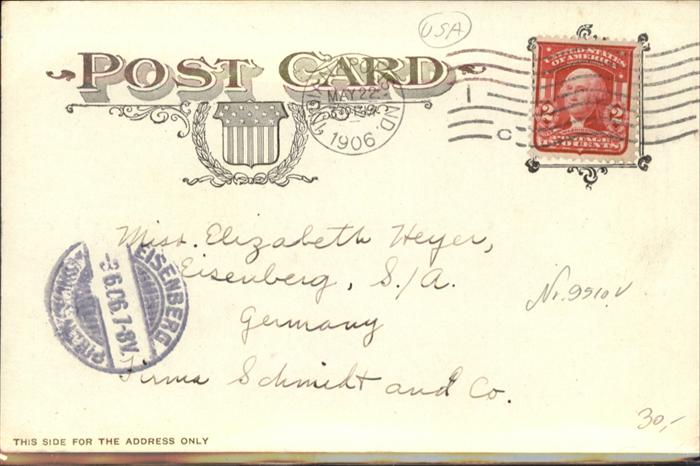 USA
POST CARD
UNITED STATES
OF AMERICA
2 2
TWO CENTS
MAY 22
IND.
1906
Miss. Elizabeth Heyer,
Eisenberg, S./A.
Germany
Firma Schmidt and Co.
EISENBERG
-3.6.06.7-8V.
Nr. 9910 V
30,-
THIS SIDE FOR THE ADDRESS ONLY